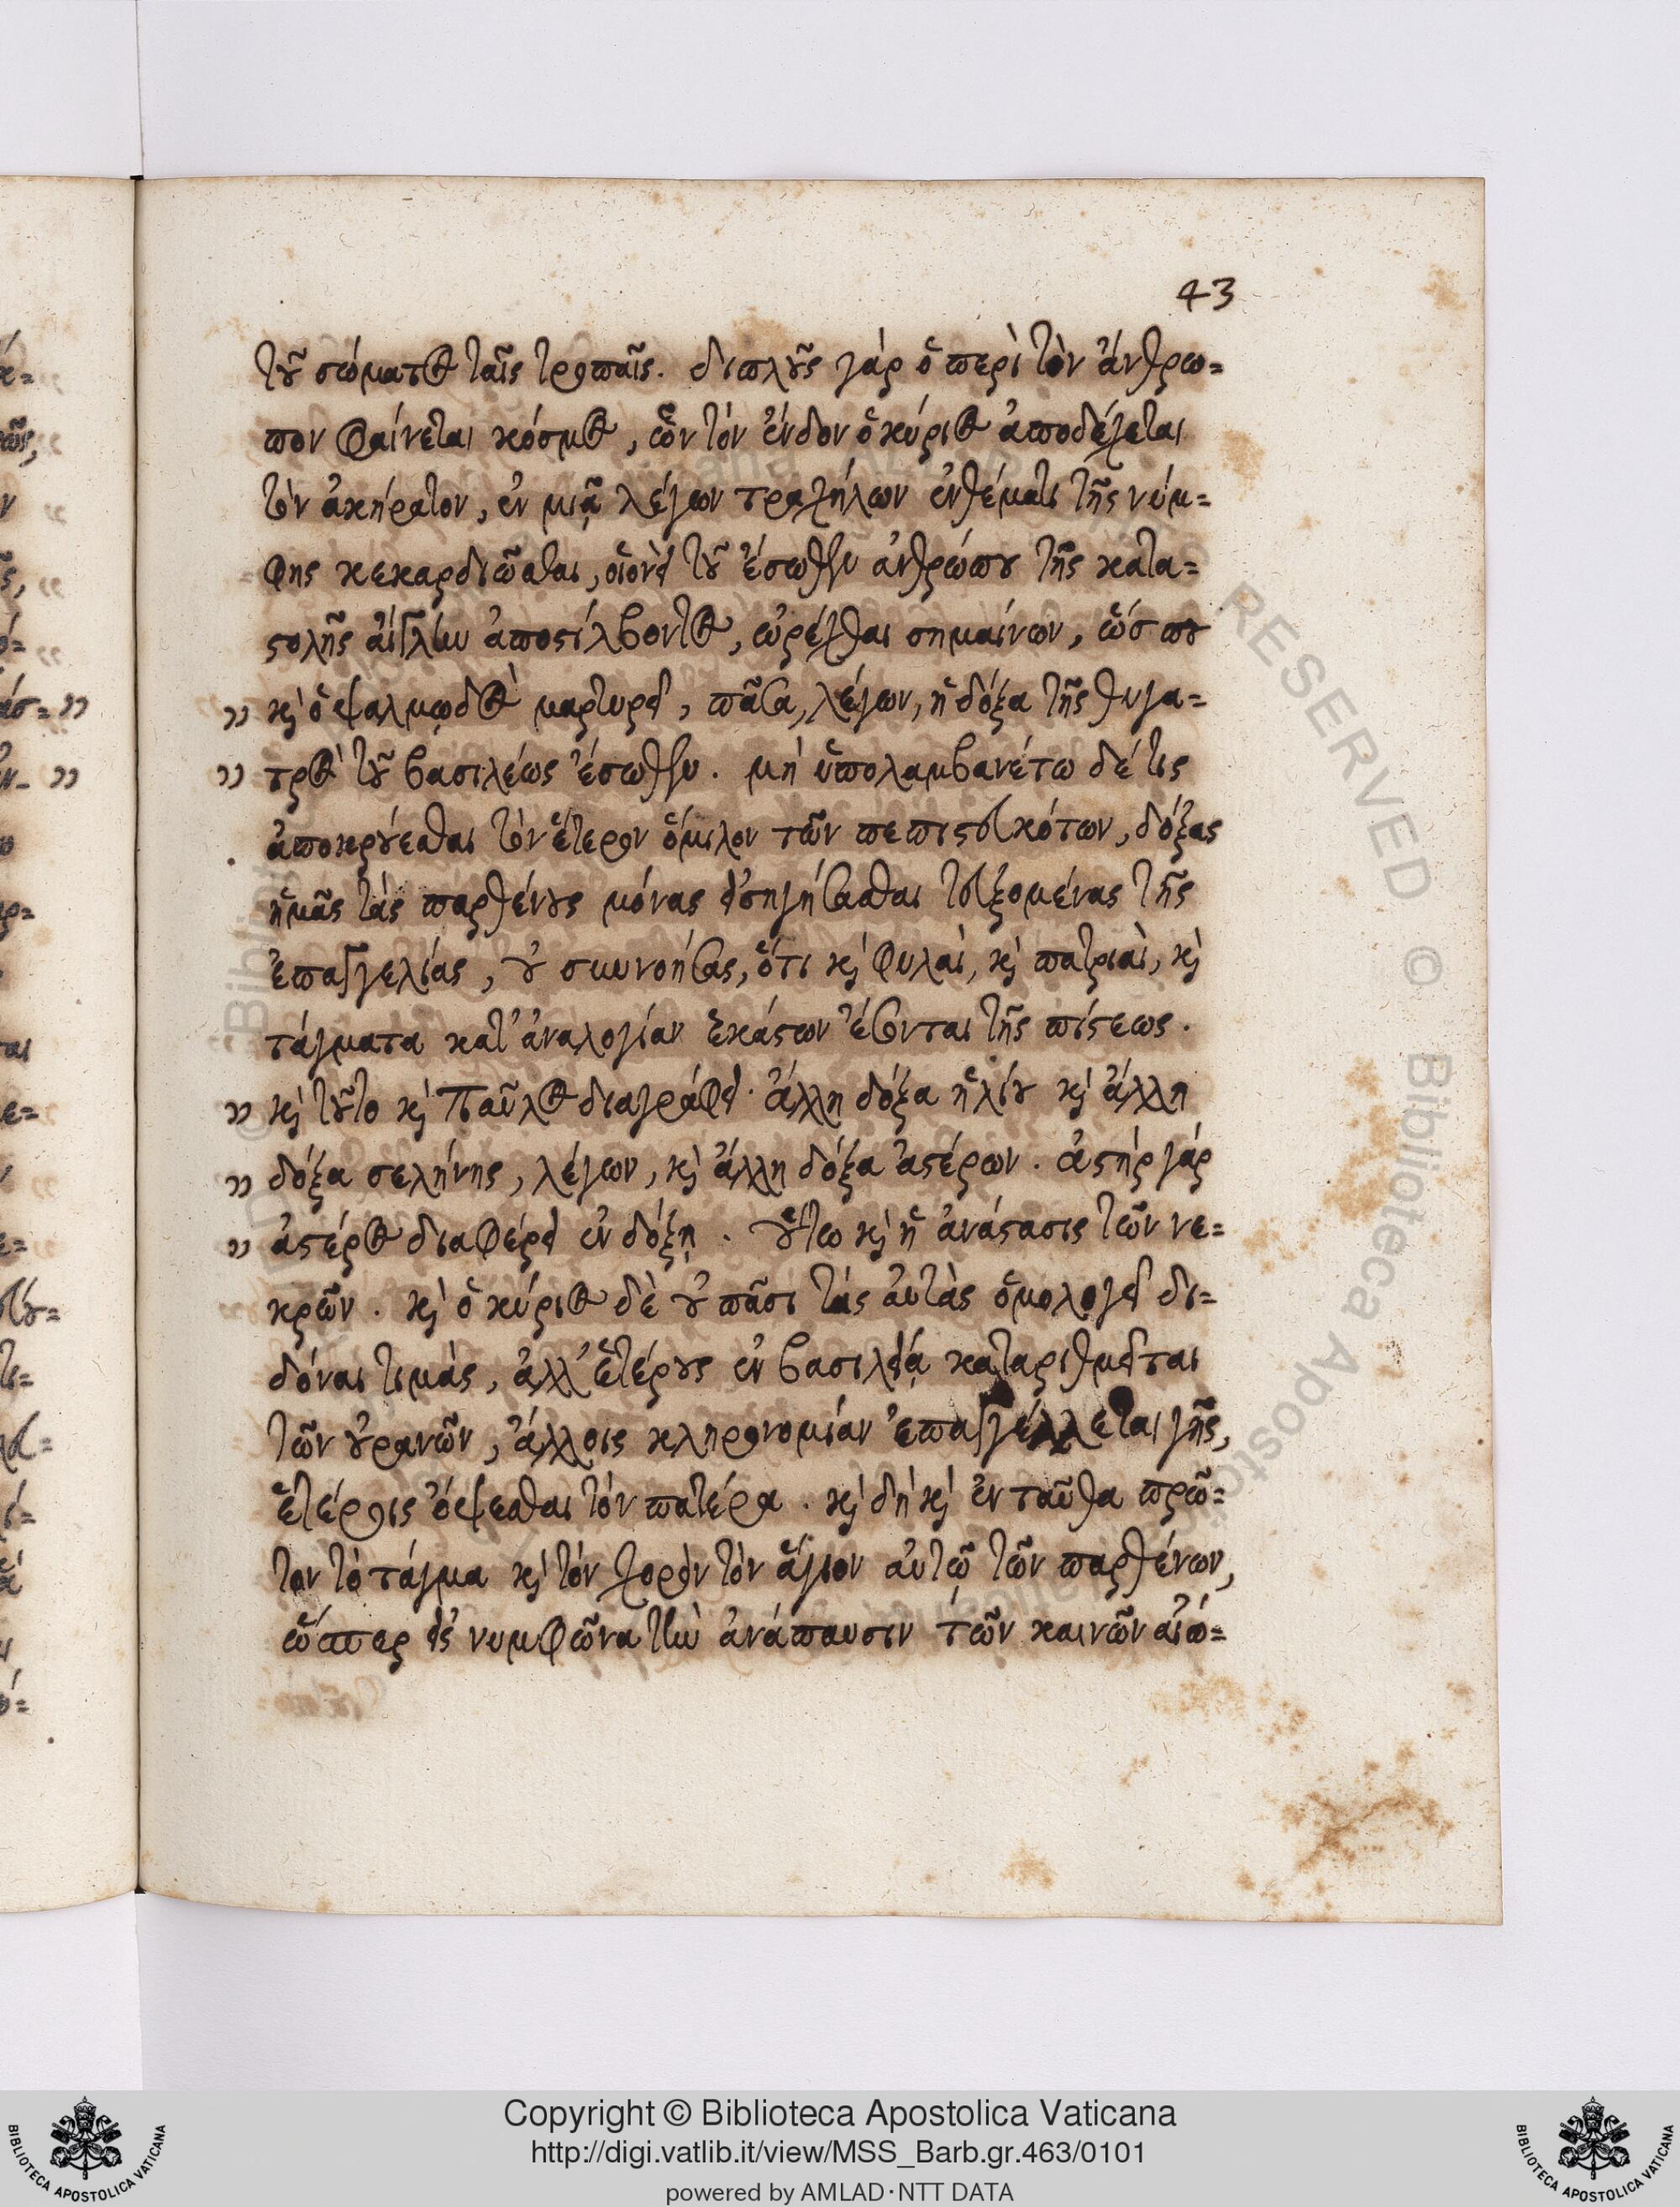 43
τοῦ σώματος ταῖς τροπαῖς. διπλοῦς γάρ ὁ περὶ τὸν ἄνθρω=
πον φαίνεται κόσμος, ὧν τόν ἔνδον ὁ κύριος ἀποδέχεται
τὸν ἀκήρατον, ἐν μιᾷ λέγων τραχήλων ἐνθέματι τῆς νύμ=
φης κεκαρδιῶσθαι, οἱονεὶ τοῦ ἔσωθεν ἀνθρώπου τῆς κατα=
στολῆς αἴγλην ἀποστίλβοντος, ὠρέχθαι σημαίνων, ὥσπου
„ καὶ ὁ ψαλμῳδὸς μαρτυρεῖ, πᾶσα, λέγων, ἡ δόξα τῆς θυγα=
„ τρὸς τοῦ βασιλέως ἔσωθεν. μή ὑπολαμβανέτω δέ τις
ἀποκρούεσθαι τὸν ἕτερον ὅμιλον τῶν πεπιστευκότων, δόξας
ἡμᾶς τάς παρθένους μόνας εἰσηγήσασθαι τευξομένας τῆς
ἐπαγγελίας, οὐ συννοήσας, ὅτι καὶ φυλαὶ, καὶ πατριαὶ, καὶ
τάγματα κατ' ἀναλογίαν ἑκάστων ἔσονται τῆς πίστεως.
„ καὶ τοῦτο καὶ Παῦλος διαγράφει· ἄλλη δόξα ἡλίου καὶ ἄλλη
„ δόξα σελήνης, λέγων, καὶ ἄλλη δόξα ἀστέρων. ἀστήρ γάρ
„ ἀστέρος διαφέρει ἐν δόξῃ. οὕτω καὶ ἡ ἀνάστασις τῶν νε=
κρῶν. καὶ ὁ κύριος δὲ οὐ πᾶσι τάς αὐτὰς ὁμολογεῖ δι=
δόναι τιμάς, ἀλλ' ἑτέρους ἐν βασιλείᾳ καταριθμεῖται
τῶν οὐρανῶν, ἄλλοις κληρονομίαν ἐπαγγέλλεται γῆς,
ἑτέροις ὄψεσθαι τόν πατέρα. καὶ δή καὶ ἐνταῦθα πρῶ=
τον τὸ τάγμα καὶ τόν χορὸν τὸν ἅγιον αὐτῷ τῶν παρθένων,
ὥσπερ εἰς νυμφῶνα τὴν ἀνάπαυσιν τῶν καινῶν αἰώ=
Copyright © Biblioteca Apostolica Vaticana
http://digi.vatlib.it/view/MSS_Barb.gr.463/0101
powered by AMLAD·NTT DATA
BIBLIOTECA APOSTOLICA VATICANA
BIBLIOTECA APOSTOLICA VATICANA